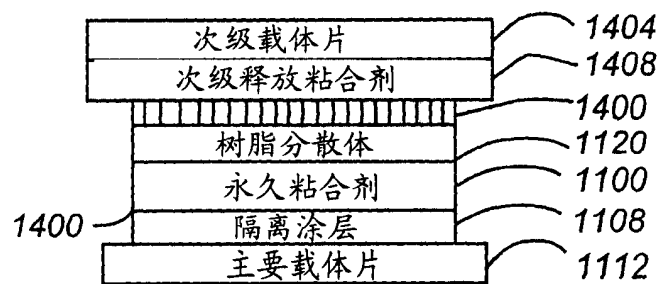 次级载体片 1404
次级释放粘合剂 1408
1400
树脂分散体 1120
永久粘合剂 1100
1400 隔离涂层 1108
主要载体片 1112